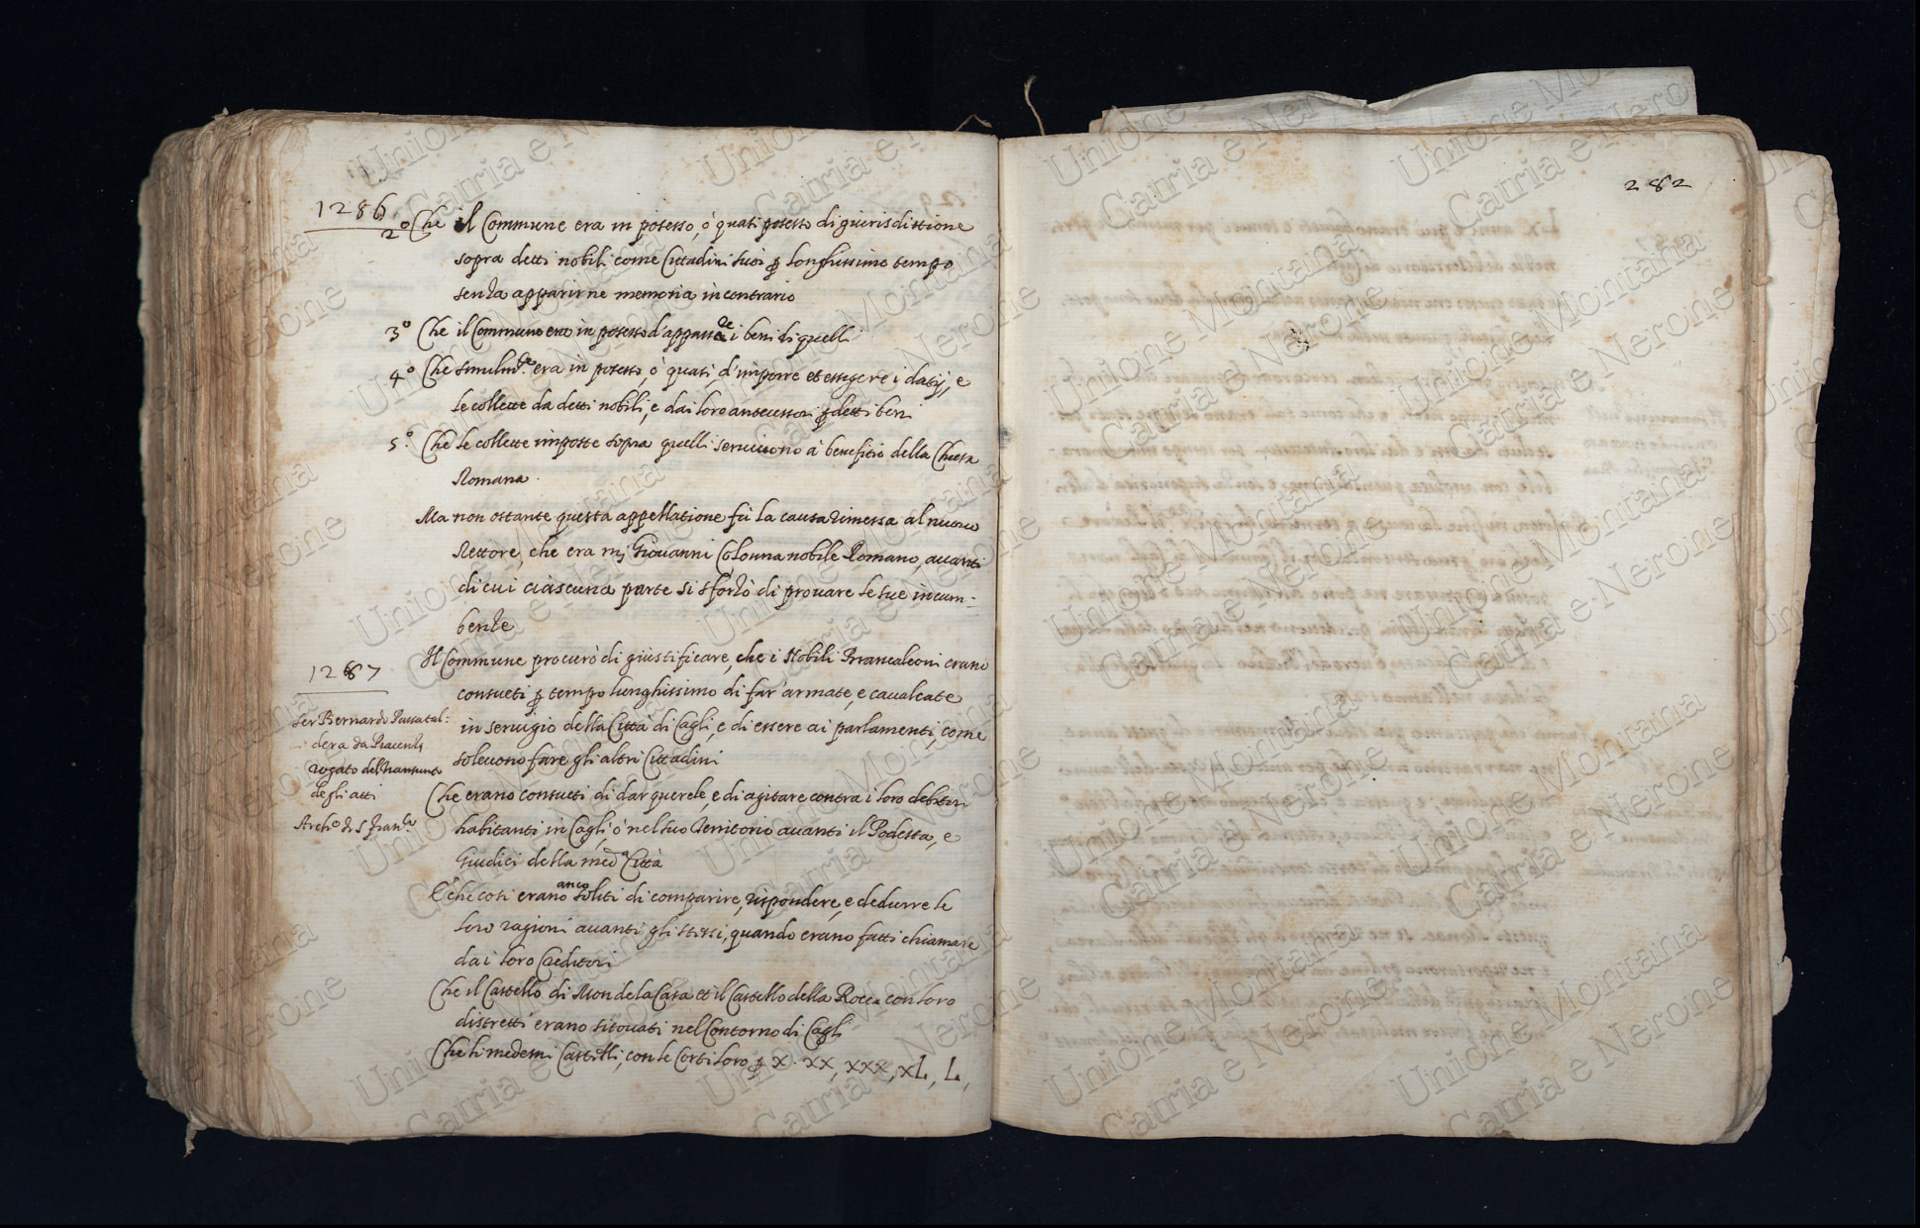 1286
2º Che il Commune era in possesso, ò quasi possesso di giurisdittione
sopra detti nobili come Cittadini suoi ꝑ longhissimo tempo
senza apparirne memoria in contrario
3º Che il Commune era in possesso d'appassare i beni di quelli
4º Che simulmte. era in possesso, ò quasi, d'imporre et essigere i datij, e
le collette da detti nobili, e dai loro antecessori ꝑ detti beni
5º. Che le collette imposte sopra quelli servivono à benefitio della Chiesa
Romana.
Ma non ostante questa appellatione fù la causa rimessa al nuovo
Rettore, che era mͥ Giovanni Colonna nobile Romano, avanti
di cui ciascuna parte si sforzò di provare le sue incum-
benze
1287
Il Commune procurò di giustificare, che i Nobili Brancaleoni erano
consueti ꝑ tempo lunghissimo di far'armate, e cavalcate
in servigio della Città di Cagli, e di essere ai parlamenti, come
solevono fare gli altri Cittadini
Ser Bernardo Passatal:
dera da Piacenza
rogato del transunto
degli atti
Archº di S Franco
Che erano consueti di dar querele, e di agitare contra i loro debitori
habitanti in Cagli, ò nel suo Territorio avanti il Podestà, e
Giudici della meda Città
E che così erano anco soliti di comparire, rispondere, e dedurre le
loro ragioni avanti gli stessi, quando erano fatti chiamare
dai loro Creditori
Che il Castello di Mondelacasa et il Castello della Rocca con loro
distretti erano situati nel Contorno di Cagli
Che li medesmi Castelli, con le Corti loro ꝑ X. XX, XXX, XL, L,
282
Unione Montana
Catria e Nerone